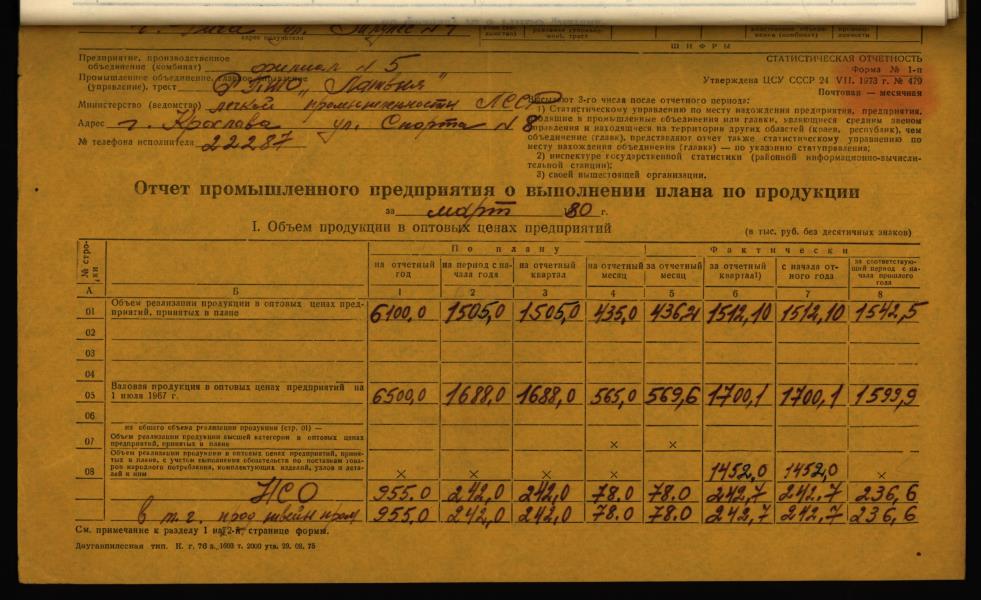 г. Рига ул.
адрес получателя
ШИФРЫ
Предприятие, производственное
объединение (комбинат) филиал № 5
Промышленное объединение, главное управление
(управление), трест РПШО "Латвия"
Министерство (ведомство) легкой промышленности ЛССР
Адрес г. Краслава ул. Спорта № 8
№ телефона исполнителя 22287
СТАТИСТИЧЕСКАЯ ОТЧЕТНОСТЬ
Форма № 1-п
Утверждена ЦСУ СССР 24 VII. 1973 г. № 479
Почтовая — месячная
3-го числа после отчетного периода:
1) Статистическому управлению по месту нахождения предприятия, предприятия,
входящие в промышленные объединения или главки, являющиеся средним звеном
управления и находящиеся на территории других областей (краев, республик), чем
объединение (главк), представляют отчет также статистическому управлению по
месту нахождения объединения (главка) — по указанию статуправления;
2) инспектуре государственной статистики (районной информационно-вычисли-
тельной станции);
3) своей вышестоящей организации.
Отчет промышленного предприятия о выполнении плана по продукции
за март 1980 г.
I. Объем продукции в оптовых ценах предприятий
(в тыс. руб. без десятичных знаков)
№ стро-
ки
По плану
Фактически
на отчетный год
на период с на-
чала года
на отчетный квартал
на отчетный месяц
за отчетный месяц
за отчетный квартал1)
с начала от-
ного года
за соответствую-
щий период с на-
чала прошлого
года
А Б 1 2 3 4 5 6 7 8
01 Объем реализации продукции в оптовых ценах пред-
приятий, принятых в плане 6100,0 1505,0 1505,0 435,0 436,21 1512,10 1512,10 1542,5
02
03
04
05 Валовая продукция в оптовых ценах предприятий на
1 июля 1967 г. 6500,0 1688,0 1688,0 565,0 569,6 1700,1 1700,1 1599,9
06
из общего объема реализации продукции (стр. 01) —
07 Объем реализации продукции высшей категории в оптовых ценах
предприятий, принятых в плане × ×
08 Объем реализации продукции в оптовых ценах предприятий, приня-
тых в плане, с учетом выполнения обязательств по поставкам това-
ров народного потребления, комплектующих изделий, узлов и дета-
лей к ним × × × × 1452,0 1452,0 ×
НСО 955.0 242,0 242,0 78.0 78.0 242,7 242,7 236,6
в т.г. прод швейн пром 955.0 242,0 242,0 78.0 78.0 242,7 242,7 236,6
См. примечание к разделу 1 на 2-й странице формы.
Даугавпилсская тип. К. г. 76 з. 1603 т. 2000 утв. 29. 08. 75